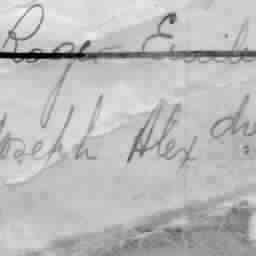 Roger Emile
Joseph Alex